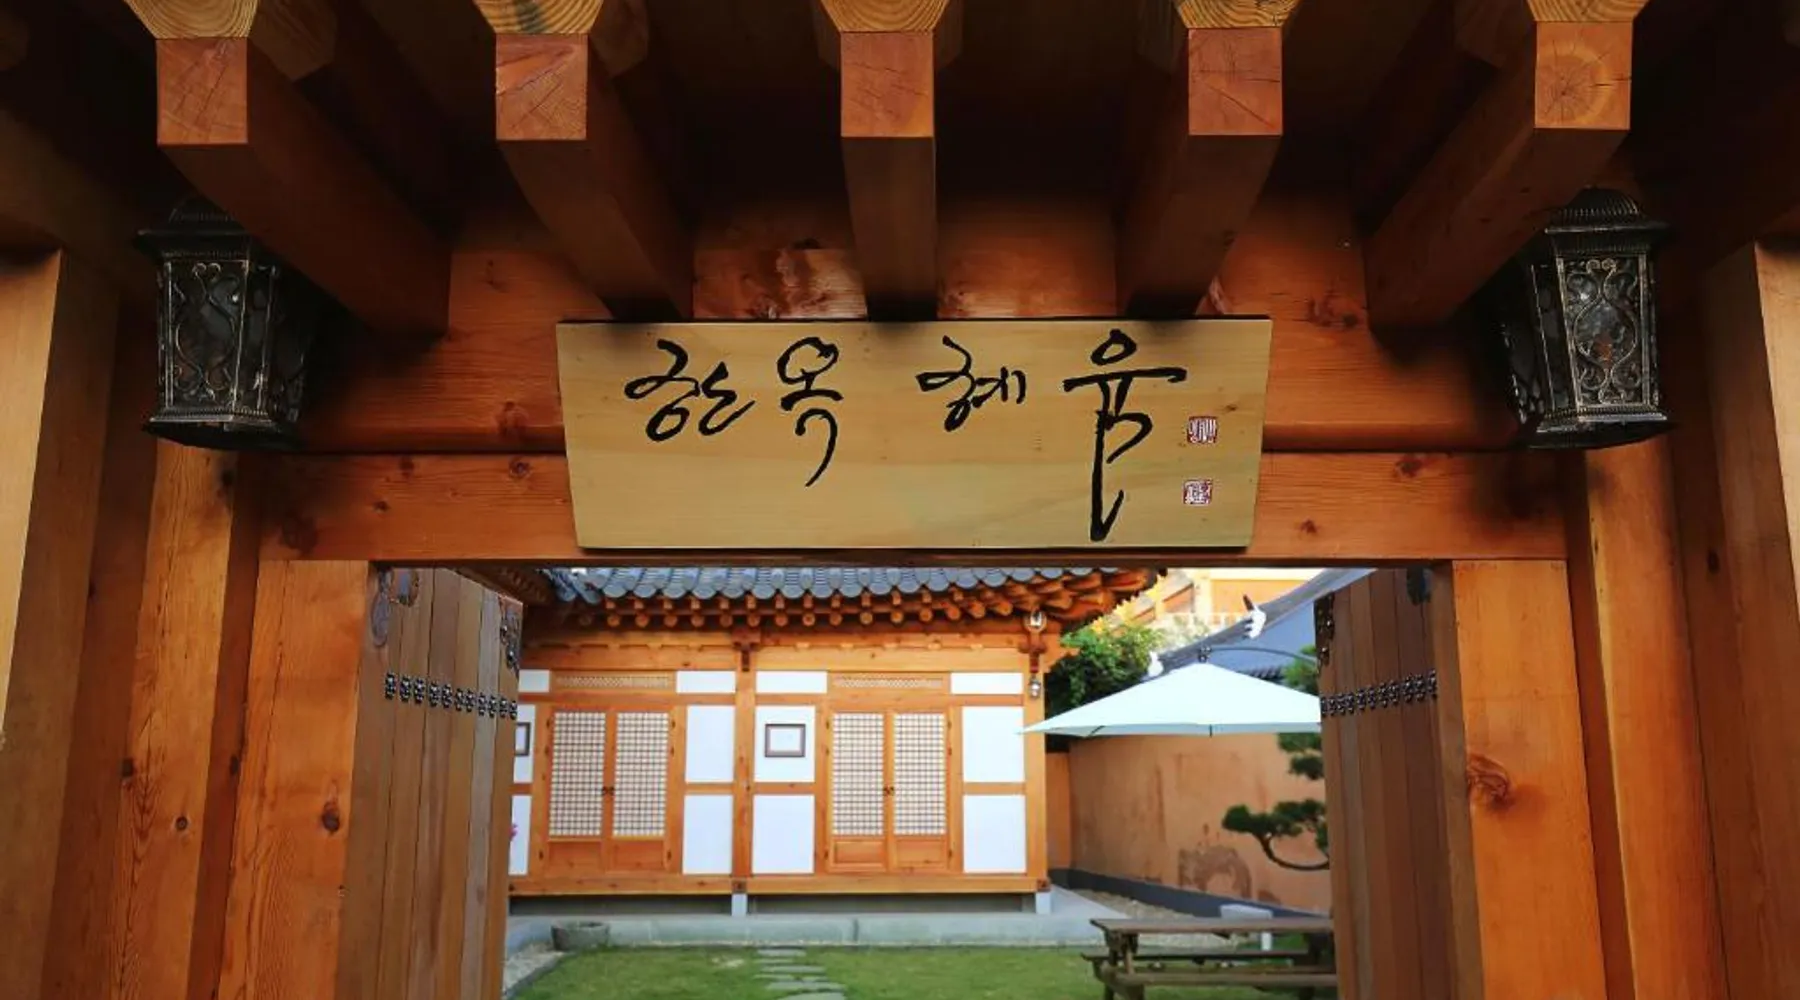 한옥 혜윰